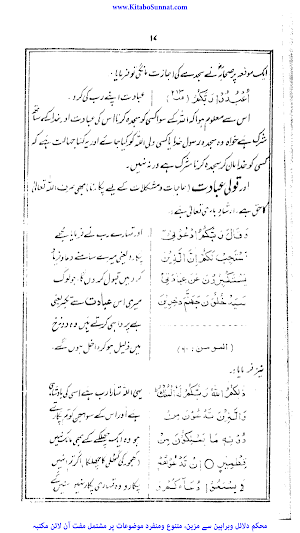 www.KitaboSunnat.com
۱۷
ایک موقعہ پر صحابہؓ نے سجدے کی اجازت مانگی تو فرمایا۔
اُعْبُدُوْا رَبَّكُمْ عبادت اپنے رب کی کرو۔
اس سے معلوم ہوا کہ اللہ کے سوا کسی کو سجدہ کرنا اس کی عبادت اور خدا کے ساتھ
شرک ہے خواہ وہ سجدہ رسول خدا یا کسی ولی اللہ کو کیا جائے اور یہ کہنا جہالت ہے کہ
کسی کو خدا مان کر سجدہ کرنا شرک ہے ورنہ نہیں۔
اور قولی عبادت (حاجات و مشکلات کے لیے پکارنا) بھی صرف اللہ تعالیٰ
کا حق ہے، ارشاد باری تعالیٰ ہے۔
وَقَالَ رَبُّكُمُ ادْعُوْنِيْ اور تمہارے رب نے فرمایا مجھے
اَسْتَجِبْ لَكُمْ اِنَّ الَّذِيْنَ پکارو یعنی میرے سامنے دعا کرو تا
يَسْتَكْبِرُوْنَ عَنْ عِبَادَتِيْ کہ میں قبول کروں گا۔ جو لوگ
سَيَدْخُلُوْنَ جَهَنَّمَ دٰخِرِيْنَ میری اس عبادت سے تکبر یعنی
بے پرواہی کرتے ہیں وہ دوزخ
(المومن: ۶۰) میں ذلیل ہو کر داخل ہوں گے۔
نیز فرمایا:
ذٰلِكُمُ اللّٰهُ رَبُّكُمْ لَهُ الْمُلْكُ یہی اللہ تمہارا رب ہے اسی کی بادشاہی
وَالَّذِيْنَ تَدْعُوْنَ مِنْ ہے اور اس کے سوا جس کو تم پکارتے
دُوْنِهٖ مَا يَمْلِكُوْنَ مِنْ ہو وہ ایک چھلکے کے بھی مالک نہیں
قِطْمِيْرٍ ۝ اِنْ تَدْعُوْهُمْ (کھجور کی گٹھلی کا چھلکا) اگر تم انہیں
لَا يَسْمَعُوْا دُعَآءَكُمْ پکارو وہ تمہاری پکار نہیں سنیں گے
محکم دلائل وبراہین سے مزین، متنوع ومنفرد موضوعات پر مشتمل مفت آن لائن مکتبہ